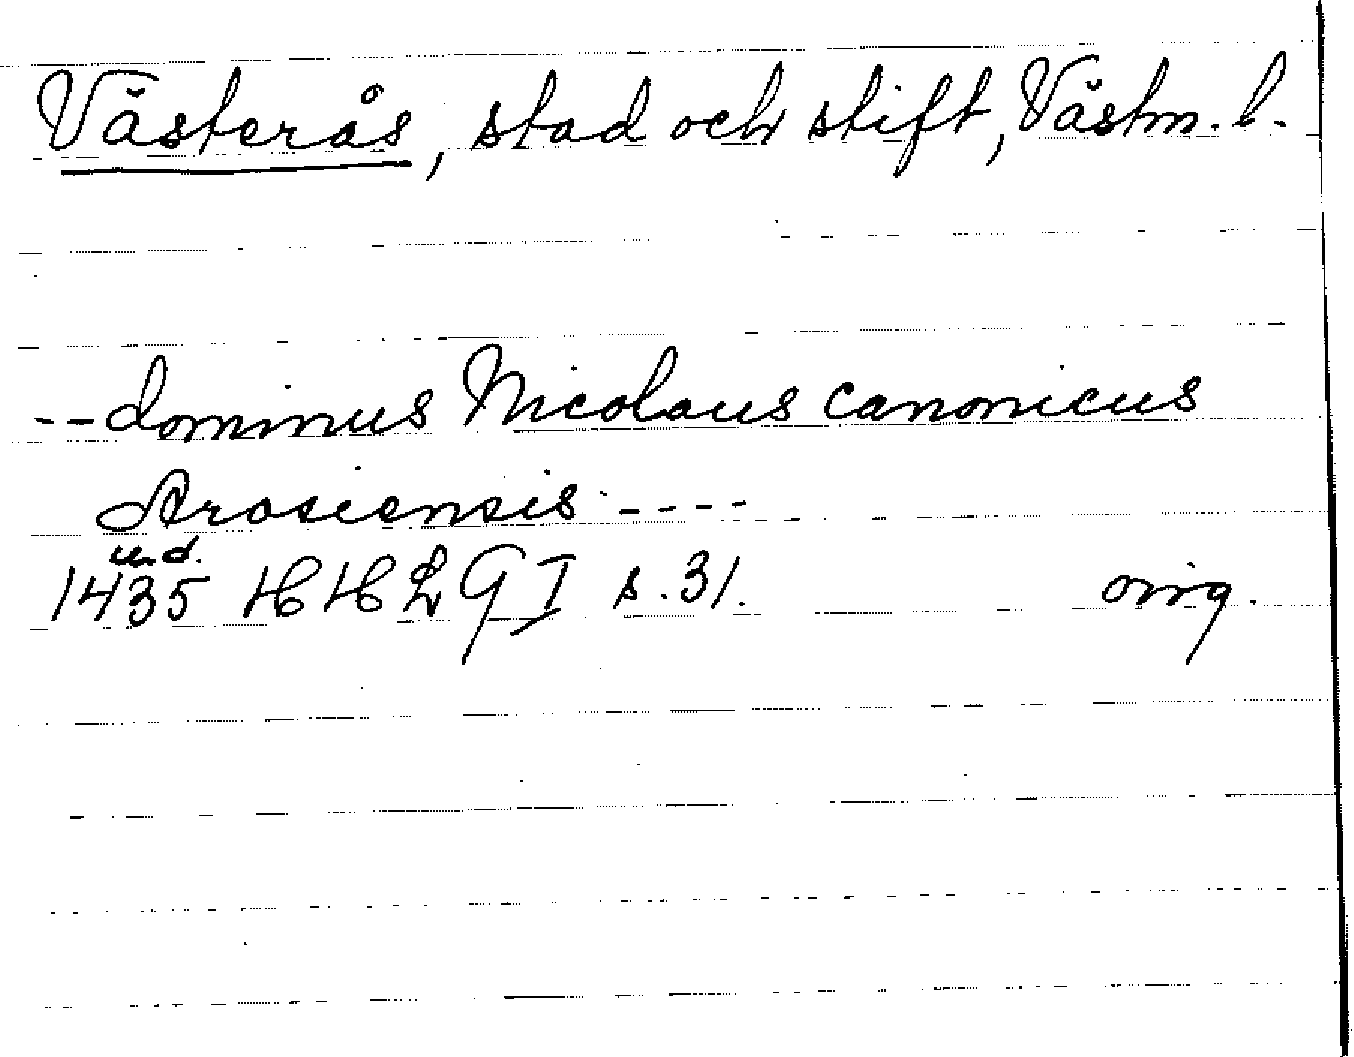 Västerås, stad och stift, Västm. l.
-- dominus Nicolaus canonicus
Arosiensis ----
und.
1435 HHLG I s. 31. orig.